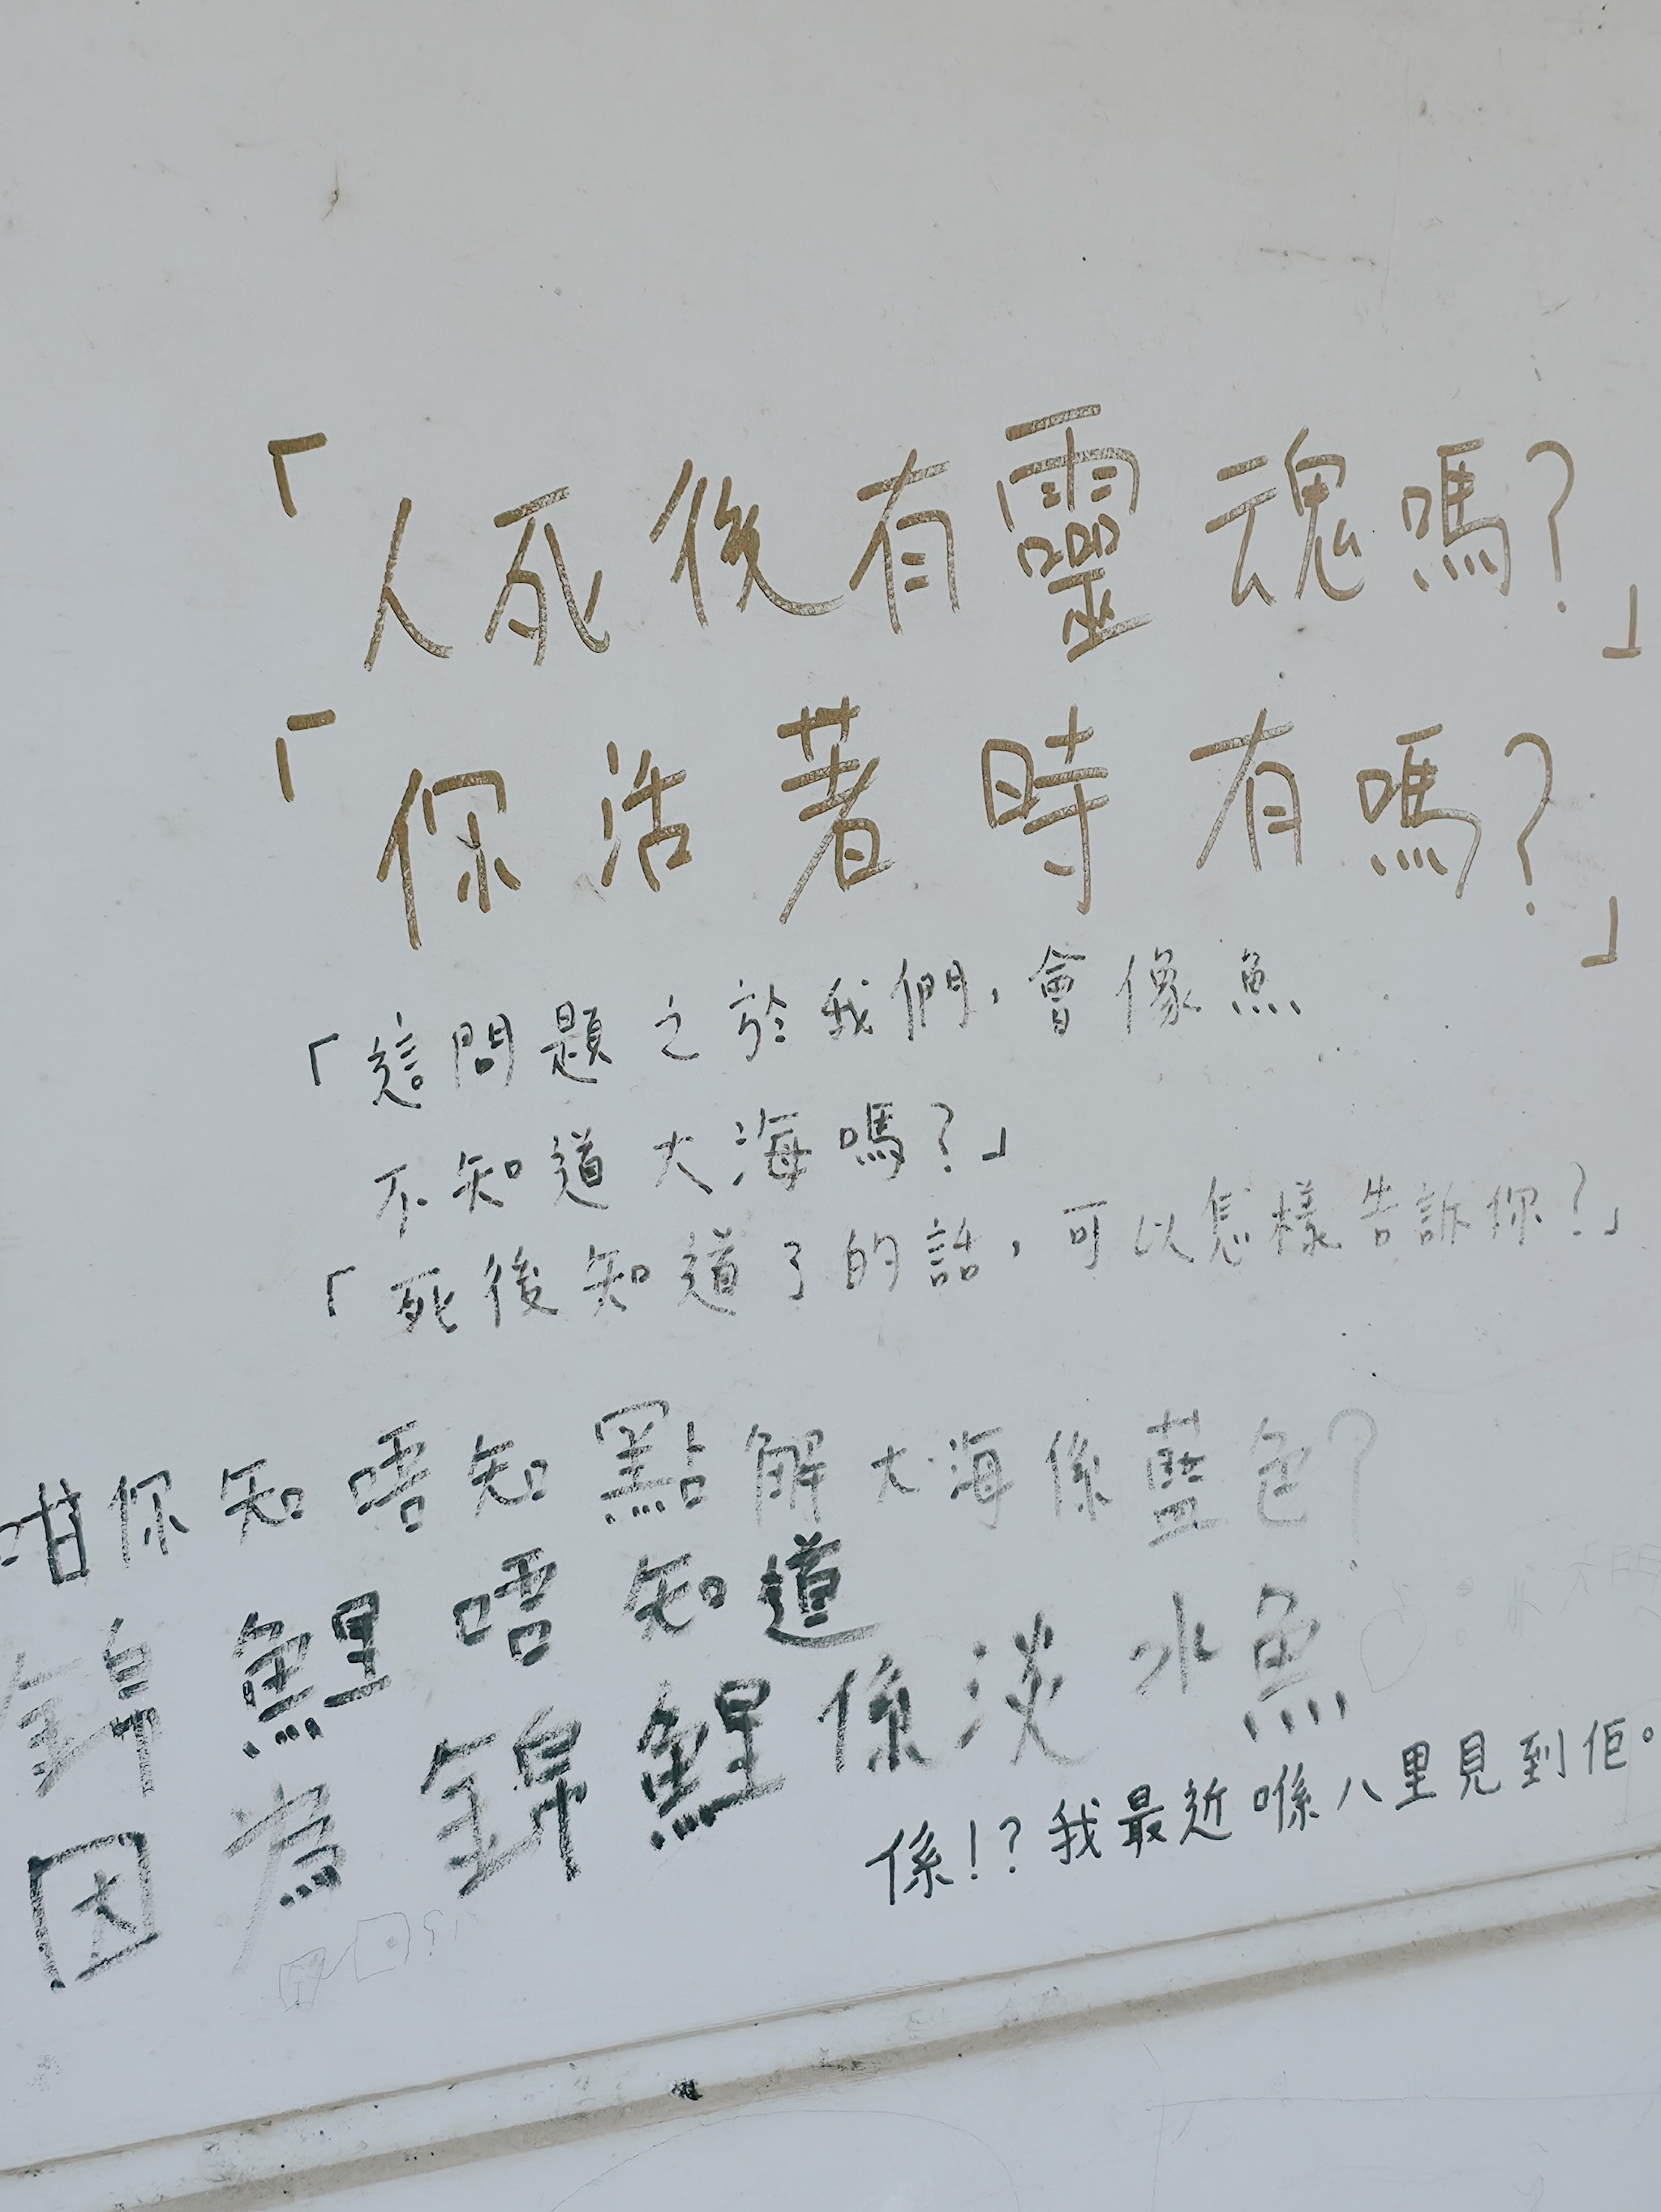 「人死後有靈魂嗎？」
「你活著時有嗎？」
「這問題之於我們，會像魚
不知道大海嗎？」
「死後知道了的話，可以怎樣告訴你？」
咁你知唔知點解大海係藍色？
錦鯉唔知道
因為錦鯉係淡水魚
係！？我最近喺八里見到佢。